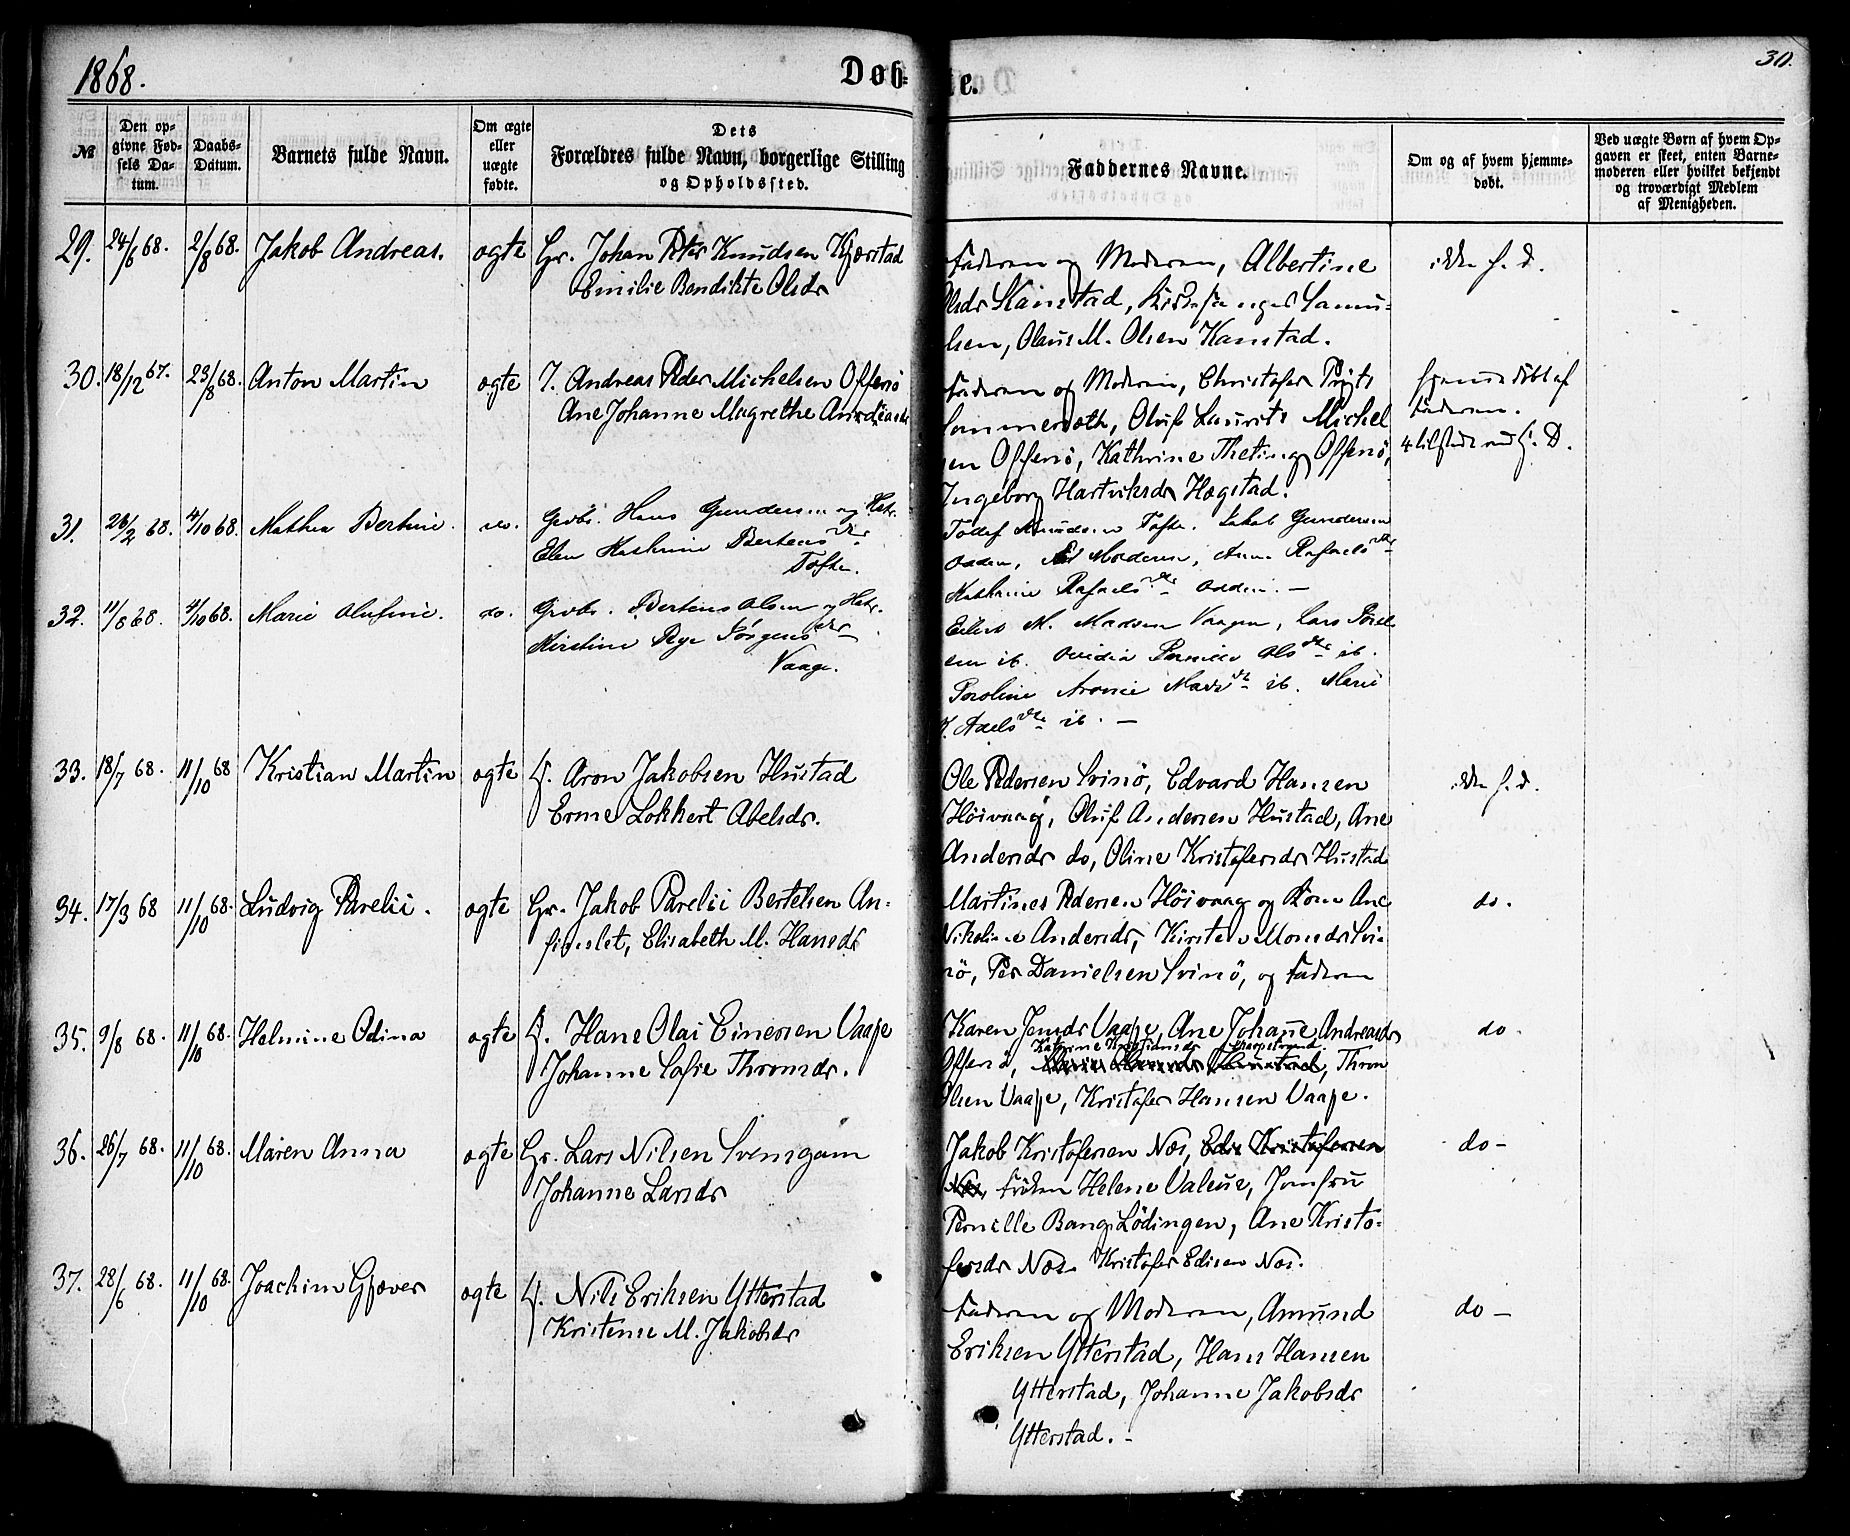 1868.
Døb-
te.
30.
№
Den op-
givne Fød-
sels Da-
tum.
Daabs-
Datum.
Barnets fulde Navn.
Om ægte
eller
uægte
fødte.
Dets
Forældres fulde Navn, borgerlige Stilling
og Opholdssted.
Faddernes Navne.
Om og af hvem hjemme-
døbt.
Ved uægte Børn af hvem Op-
gaven er skeet, enten Barne-
moderen eller hvilket bekjendt
og troværdigt Medlem
af Menigheden.
29. 24/6 68. 2/8 68. Jakob Andreas. ogte Gr. Johan Peter Knudsen Kjærstad
Emilie Bendikte Olsdr
Faderen og Moderen, Albertine
Olsdr Kanstad, Samu-
lsen, Olaus M. Olsen Kanstad.
ikke h. d.
30. 18/12 67. 23/8 68. Anton Martin ogte I. Andreas Peder Michelsen Offersö
Ane Johanne Magrethe Andreasdr
Faderen og Moderen, Christofer
Oluf Laurits Michel
sen Offersö, Kathrine Offersö,
Ingeborg Hartviksdr Hægstad.
hjemmedöbt af
Faderen.
4 tilstede ved h. D.
31. 26/2 68. 4/10 68. Mathea Bertine. do. Grbr. Hans Gundersen og Hstr.
Elen Kathrine Bertensdtr
Tofte.
Knudsen Tofte. Jakob Gundersen
Odden, Moderen, Anne Rafaelsdtr
Kathrine Rafaelsdtr Odden. —
32. 11/8 68. 4/10 68. Marie Olufine. do. Grbr. Bertens Olsen og Hstr.
Kirstine Jörgensdtr
Vaage.
Eilert M. Madsen Vaagen, Lars
sen ib. Ovidia Pernille Olsdtr ib.
Madsdtr ib. Marie
Axelsdtr ib. —
33. 18/7 68. 11/10 68 Kristian Martin ogte I. Aron Jakobsen Hustad
Erme Lokkert Abelsdr.
Ole Pedersen Svinö, Edvard Hansen
Höivaag, Oluf Andersen Hustad, Ane
Andersdr do, Oline Kristofersdr Hustad
ikke h. d.
34. 17/3 68 11/10 68. Ludvig Parelii. ogte Gr. Jakob Parelii Bertelsen An-
finslet, Elisabeth M. Hansdr
Martines Pedersen Höivaag og Kone Ane
Nikoline Andersdr, Kirsten Monsdr Svi-
nö, Per Danielsen Svinö, og Faderen
do.
35. 9/8 68. 11/10 68. Helmine Odina ogte I. Hans Olai Einersen Vaage
Johanne Sofie Thronsdr.
Karen Jensdr Vaage, Ane Johanne Andreasdr
Katrine Kristiansdr
Offersö, Thron
Olsen Vaage, Kristofer Hansen Vaage.
do.
36. 26/7 68. 11/10 68. Maren Anna ogte Gr. Lars Nilsen Svensgam
Johanne Larsdr
Jakob Kristofersen Næs, Edis Kristofersen
Næs, Fröken Helene Valeur, Jomfru
Pernille Bang Lödingen, Ane Kristo-
fersdr Næs. Kristofer Edisen Næs.
do –
37. 28/6 68. 11/10 68. Joachim Gjæver ogte I. Nils Eriksen Ytterstad
Kristense M. Jakobsdr
Faderen og Moderen, Amund
Eriksen Ytterstad, Hans Hansen
Ytterstad, Johanne Jakobsdr
Ytterstad. –
do –